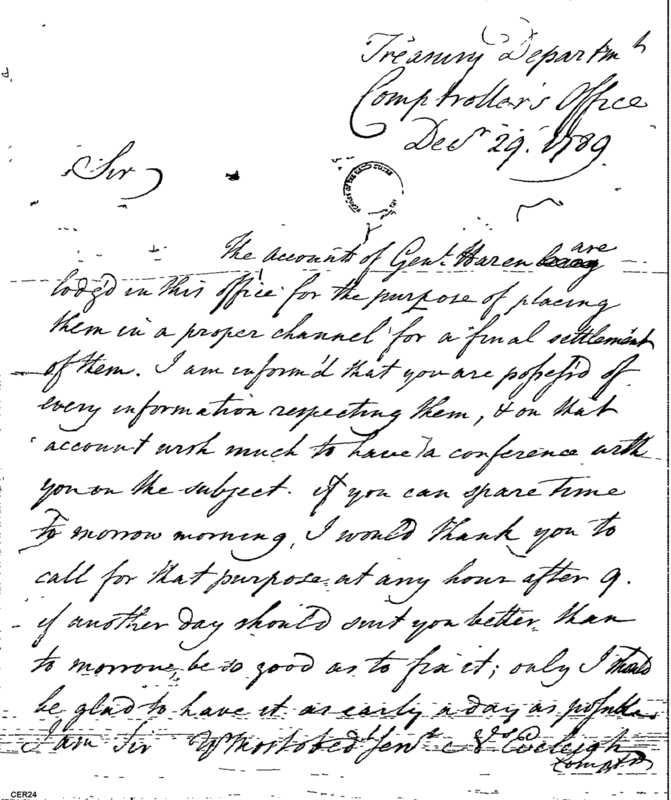 Treasury Departm^t
Comptroller's Office
Dec^r 29. 1789.
Sir
The account of Gen^l. Hazen are
lodg'd in this office for the purpose of placing
them in a proper channel for a final settlement
of them. I am inform'd that you are possess'd of
every information respecting them, & on that
account wish much to have a conference with
you on the subject. if you can spare time
to morrow morning, I would thank you to
call for that purpose at any hour after 9.
if another day should suit you better than
to morrow, be so good as to fix it; only I should
be glad to have it as early a day as possible.
I am Sir Y^r Most obed^t Serv^t Eveleigh
Compt^r
CER24